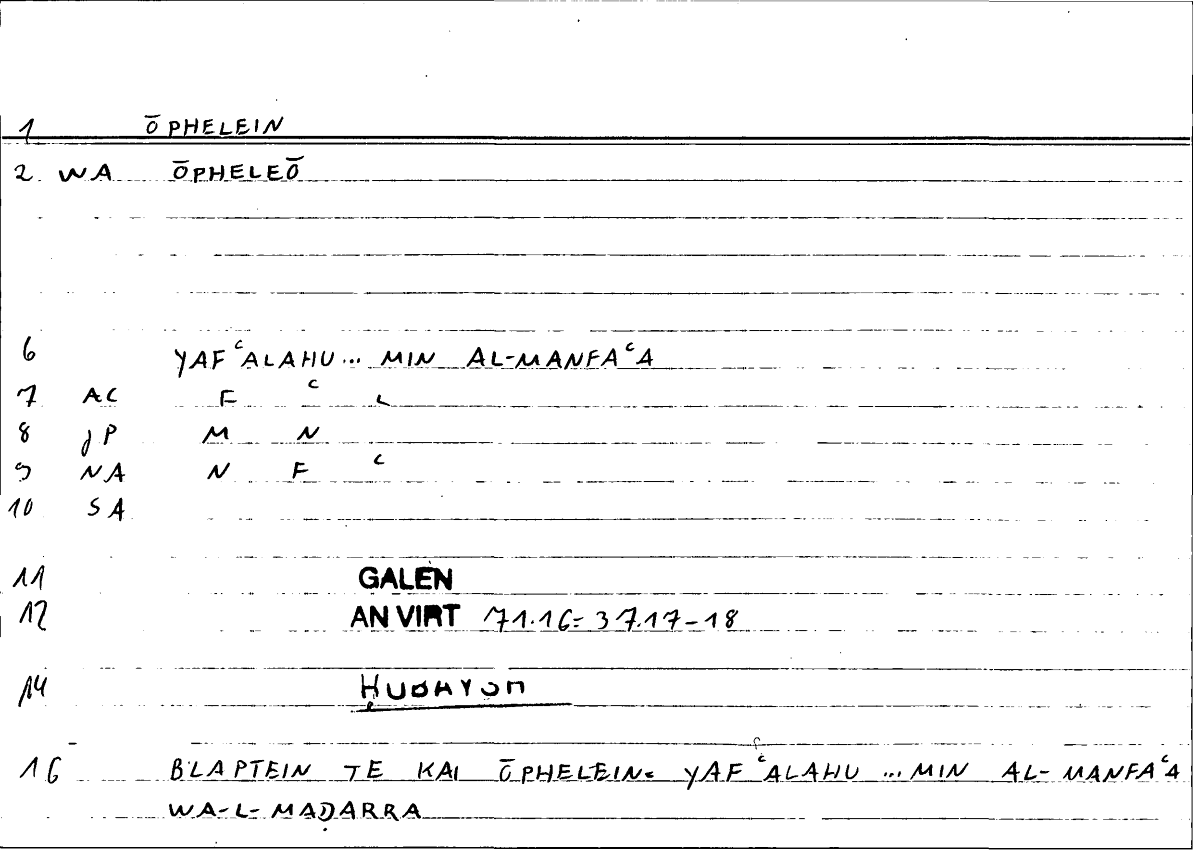 1 ŌPHELEIN
2 WA ŌPHELEŌ
6 YAFʿALAHU... MIN AL-MANFAʿA
7 AC F ʿ L
8 JP M N
9 NA N F ʿ
10 SA
11 GALEN
12 AN VIRT 71.16=37.17-18
14 ḤUBAYŠ
16 BLAPTEIN TE KAI ŌPHELEIN= YAFʿALAHU ... MIN AL-MANFAʿA
WA-L-MAḌARRA